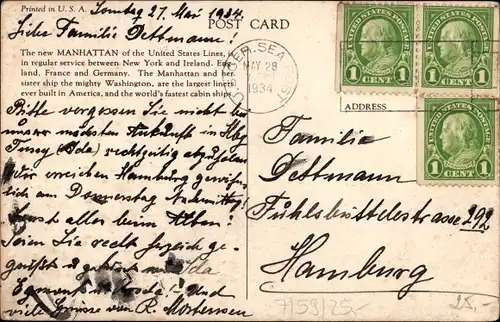 Printed in U. S. A.
Sonntag 27. Mai 1934
POST CARD
Liebe Familie Dettmann!
The new MANHATTAN of the United States Lines,
in regular service between New York and Ireland, Eng-
land, France and Germany. The Manhattan and her
sister ship the mighty Washington, are the largest liners
ever built in America, and the world's fastest cabin ships.
Bitte vergessen Sie nicht bei
unserer nächsten Ankunft in Hbg
(Ida) rechtzeitig abzuholen
Wir erreichen Hamburg
am Donnerstag Nachmittag!
alles beim Alten!
Seien Sie recht herzlich ge-
grüßt
Und
viele Grüsse von R. Mortensen
U.S. GER. SEA
MAY 28
1934
UNITED STATES POSTAGE
1 CENT 1
UNITED STATES POSTAGE
1 CENT 1
ADDRESS
UNITED STATES POSTAGE
1 CENT 1
Familie
Dettmann
Fühlsbüttelestrasse 292
Hamburg
7159/25,-
25,-